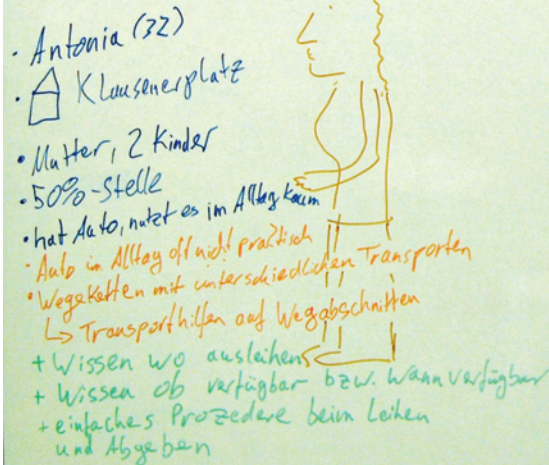 · Antonia (32)
· Klausenerplatz
· Mutter, 2 Kinder
· 50%-Stelle
· hat Auto, nutzt es im Alltag kaum
· Auto im Alltag oft nicht praktisch
· Wegeketten mit unterschiedlichen Transporten
↳ Transporthilfen auf Wegabschnitten
+ Wissen wo ausleihen
+ Wissen ob verfügbar bzw. wann verfügbar
+ einfaches Prozedere beim Leihen
und Abgeben